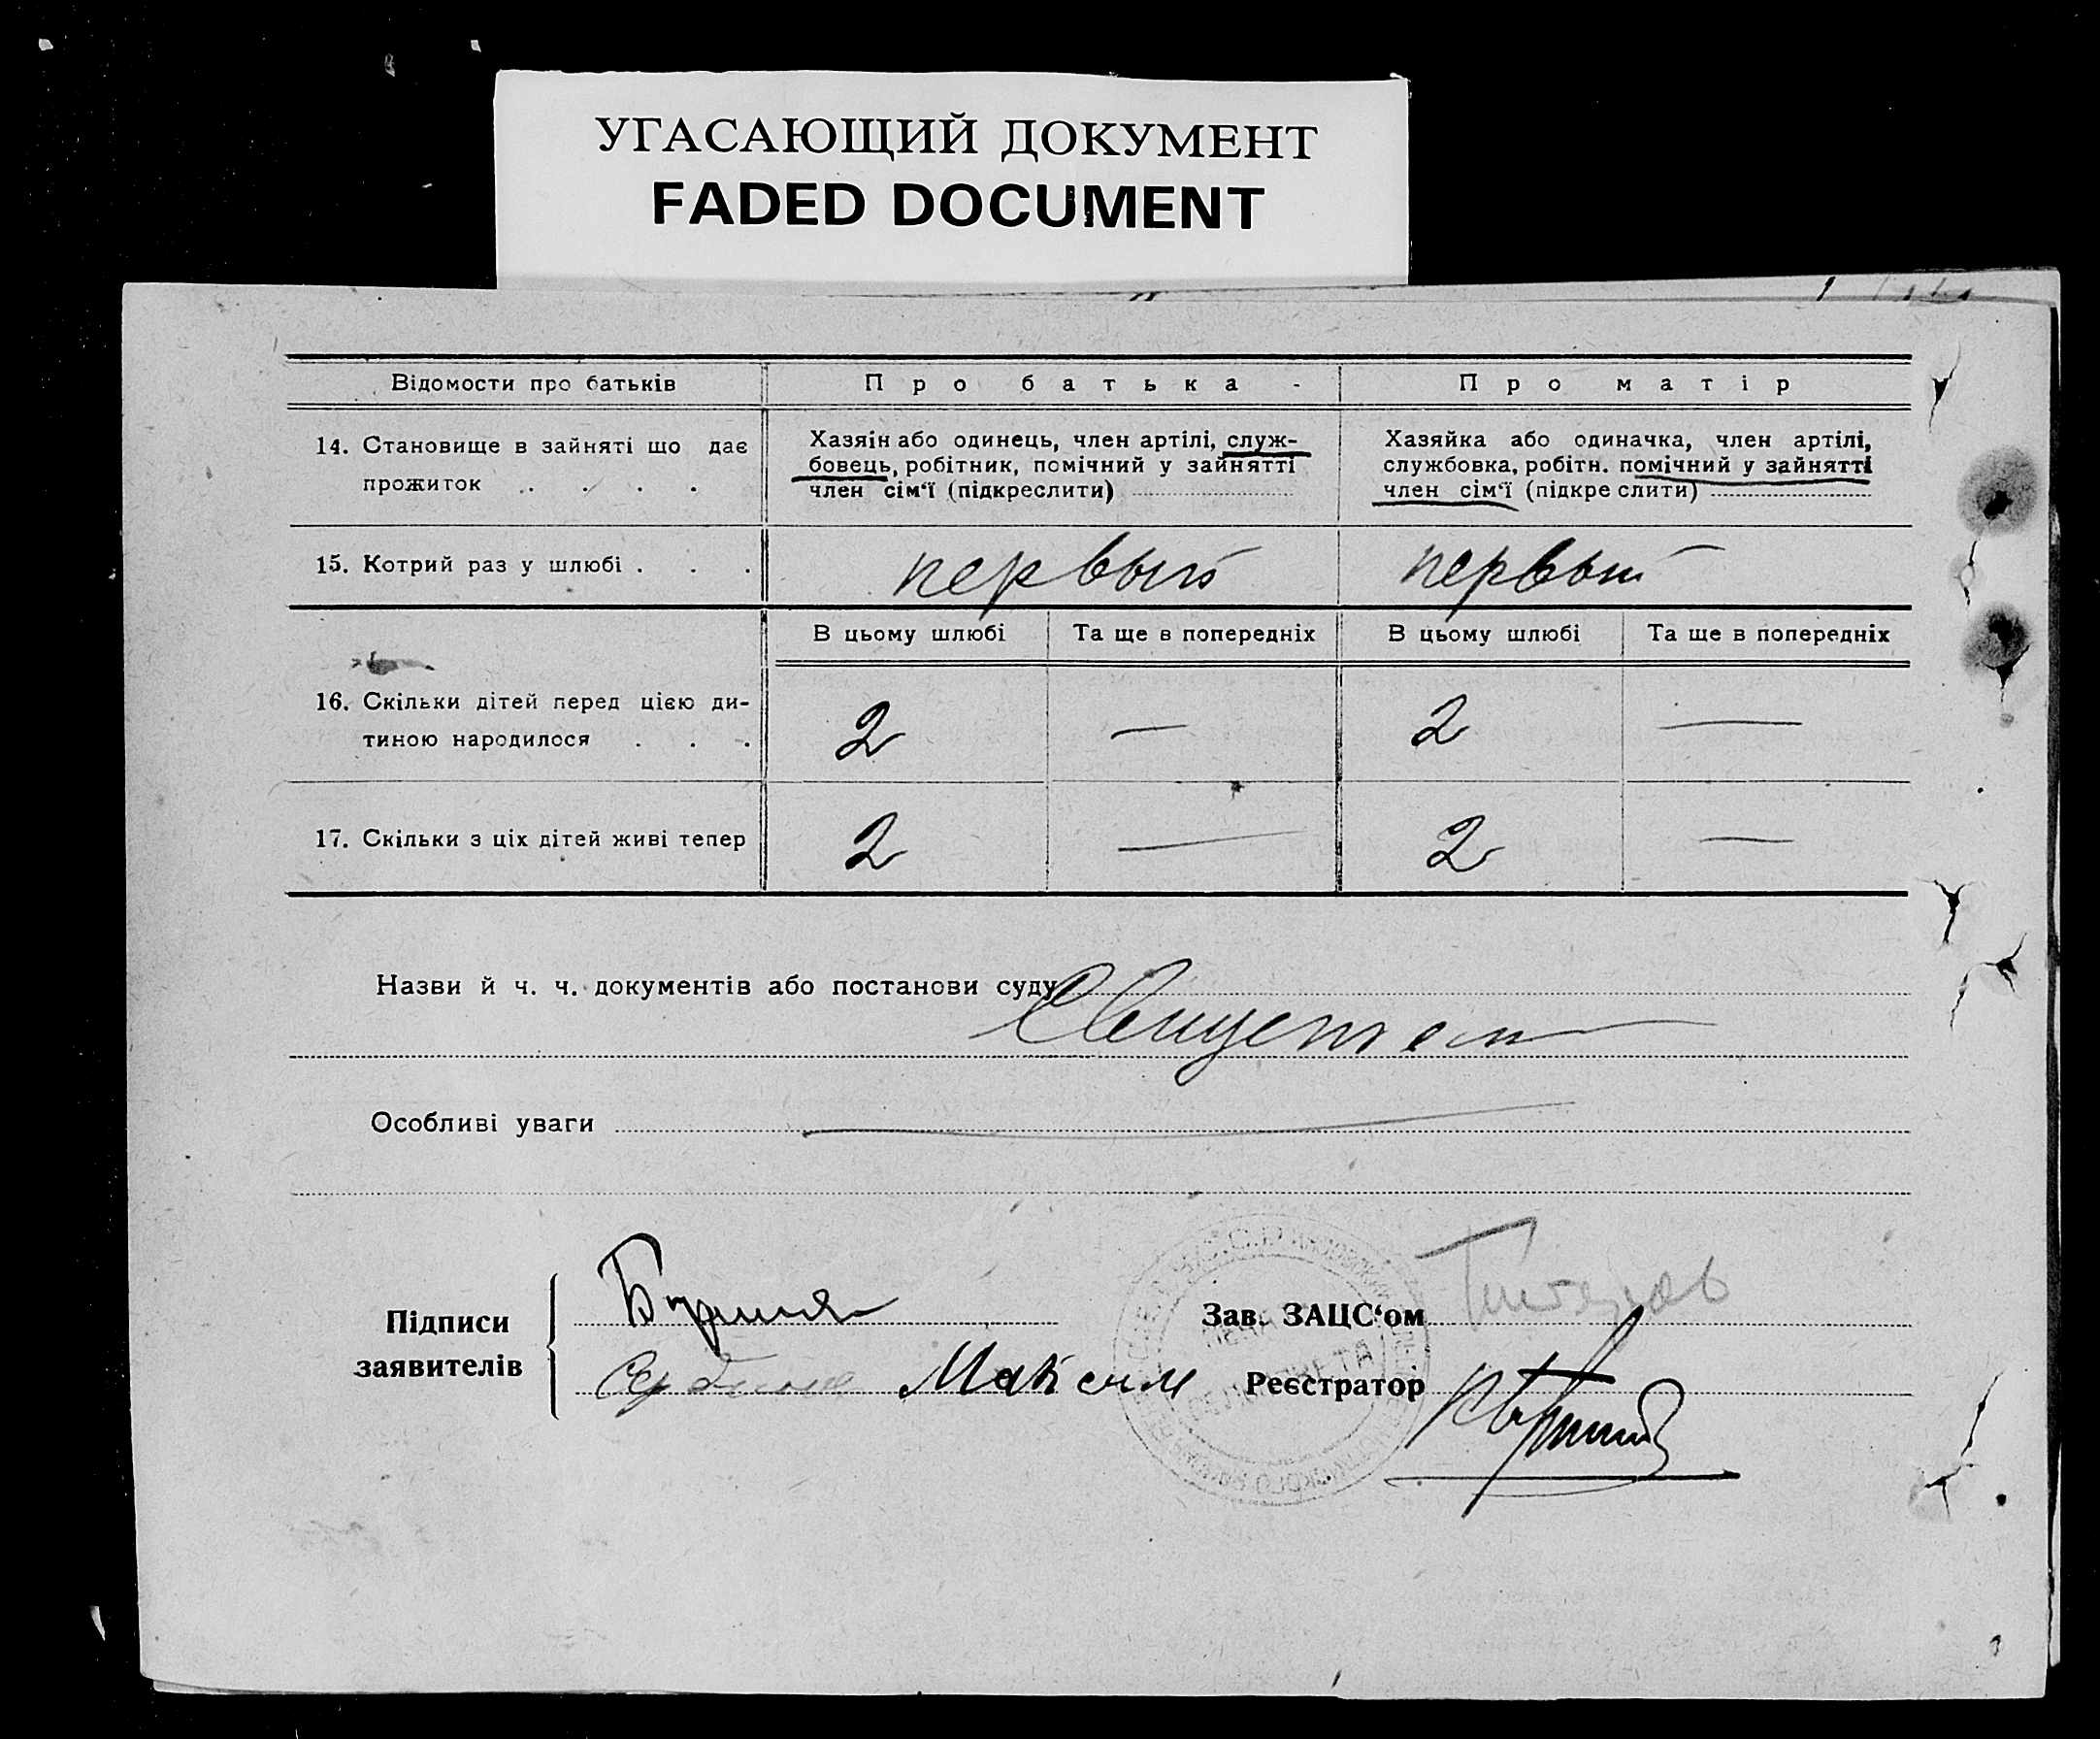 УГАСАЮЩИЙ ДОКУМЕНТ
FADED DOCUMENT
Відомости про батьків
Про батька -
Про матір
14. Становище в зайняті що дає
прожиток . . . .
Хазяін або одинець, член артілі, служ-
бовець, робітник, помічний у зайнятті
член сім‘ї (підкреслити)
Хазяйка або одиначка, член артілі,
службовка, робітн. помічний у зайнятті
член сім‘ї (підкреслити)
15. Котрий раз у шлюбі . . .
первый
первый
В цьому шлюбі
Та ще в попередніх
В цьому шлюбі
Та ще в попередніх
16. Скільки дітей перед цією ди-
тиною народилося . . .
2
—
2
—
17. Скільки з ціх дітей живі тепер
2
—
2
—
Назви й ч. ч. документів або постанови суду
Особливі уваги
Підписи
заявителів
Максим
Зав. ЗАЦС‘ом
Реєстратор